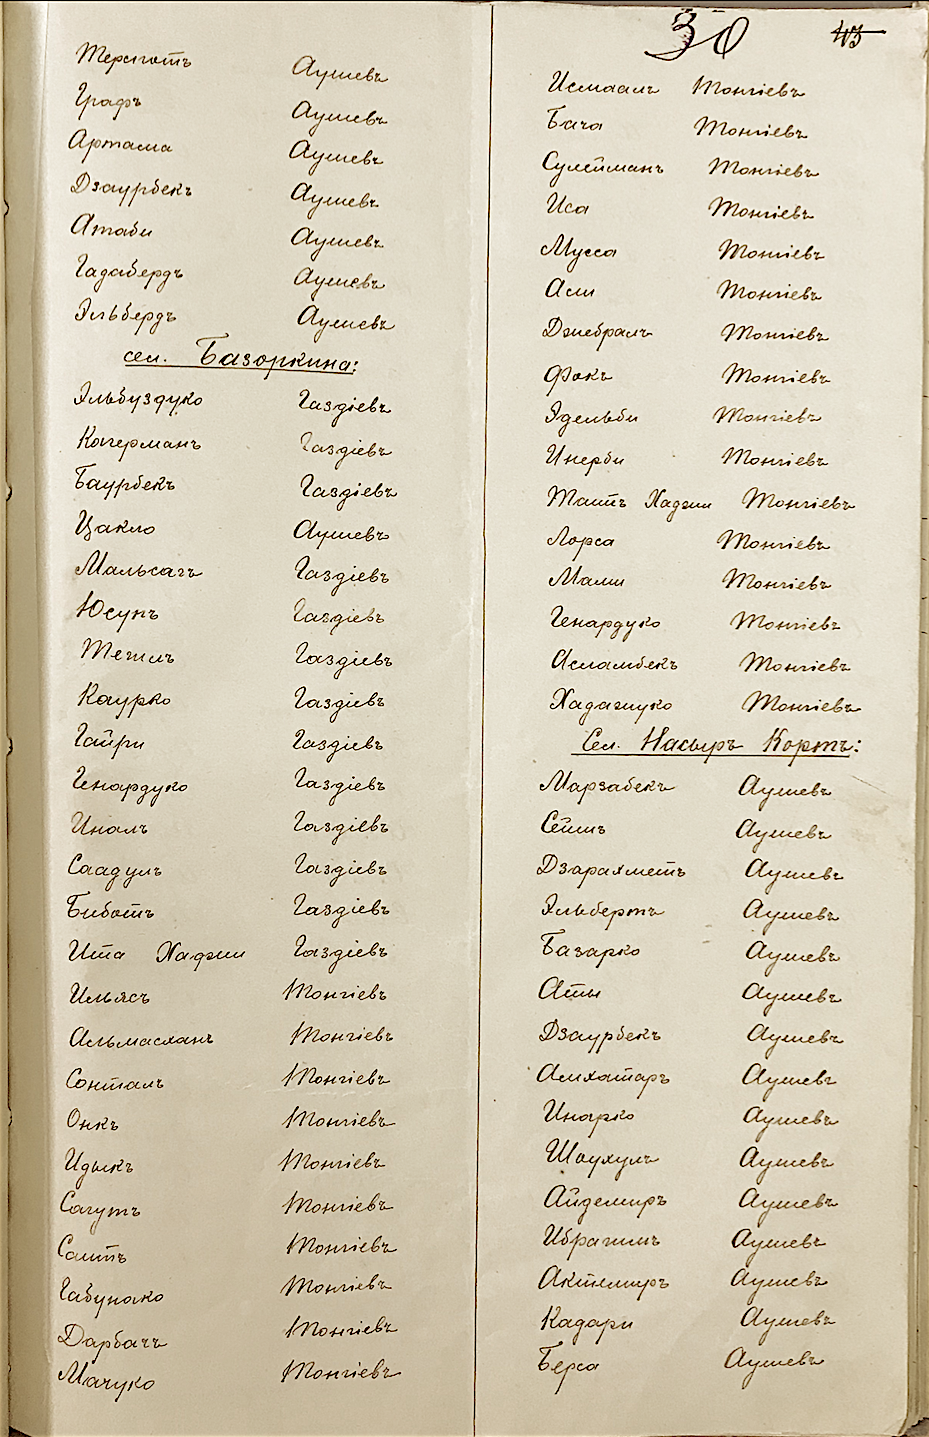 30 43
Терсготъ Аушевъ
Графъ Аушевъ
Артама Аушевъ
Дзаурбекъ Аушевъ
Атаби Аушевъ
Гадабердъ Аушевъ
Эльбердъ Аушевъ
сел. Базоркина:
Эльбуздуко Газдіевъ
Когерманъ Газдіевъ
Баурбекъ Газдіевъ
Цакло Аушевъ
Мальсагъ Газдіевъ
Юсупъ Газдіевъ
Тешлъ Газдіевъ
Каурко Газдіевъ
Гайри Газдіевъ
Генардуко Газдіевъ
Иналъ Газдіевъ
Саадулъ Газдіевъ
Биботъ Газдіевъ
Ита Хаджи Газдіевъ
Ильясъ Тонгіевъ
Альмасханъ Тонгіевъ
Сонталъ Тонгіевъ
Онкъ Тонгіевъ
Идыкъ Тонгіевъ
Согутъ Тонгіевъ
Саитъ Тонгіевъ
Габунако Тонгіевъ
Дарбачъ Тонгіевъ
Мачуко Тонгіевъ
Исмаалъ Тонгіевъ
Бача Тонгіевъ
Сулейманъ Тонгіевъ
Иса Тонгіевъ
Мусса Тонгіевъ
Аси Тонгіевъ
Джебралъ Тонгіевъ
Фокъ Тонгіевъ
Эдельби Тонгіевъ
Инерби Тонгіевъ
Таитъ Хаджи Тонгіевъ
Лорса Тонгіевъ
Маши Тонгіевъ
Генардуко Тонгіевъ
Асламбекъ Тонгіевъ
Хадагжуко Тонгіевъ
Сел. Насыръ Кортъ:
Марзабекъ Аушевъ
Сейтъ Аушевъ
Дзарахметъ Аушевъ
Эльбертъ Аушевъ
Базарко Аушевъ
Аты Аушевъ
Дзаурбекъ Аушевъ
Алихотаръ Аушевъ
Инарко Аушевъ
Шаухулъ Аушевъ
Айдемиръ Аушевъ
Ибрагимъ Аушевъ
Актемиръ Аушевъ
Кадари Аушевъ
Берса Аушевъ